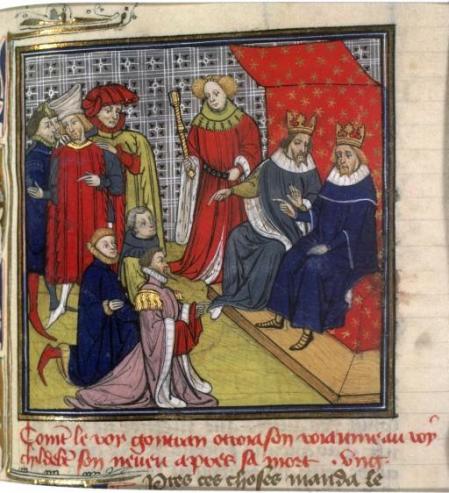 Comt le roy gontran ottroia son roiaume au roy
childebt son neveu apres sa mort .
pres ces choses manda le